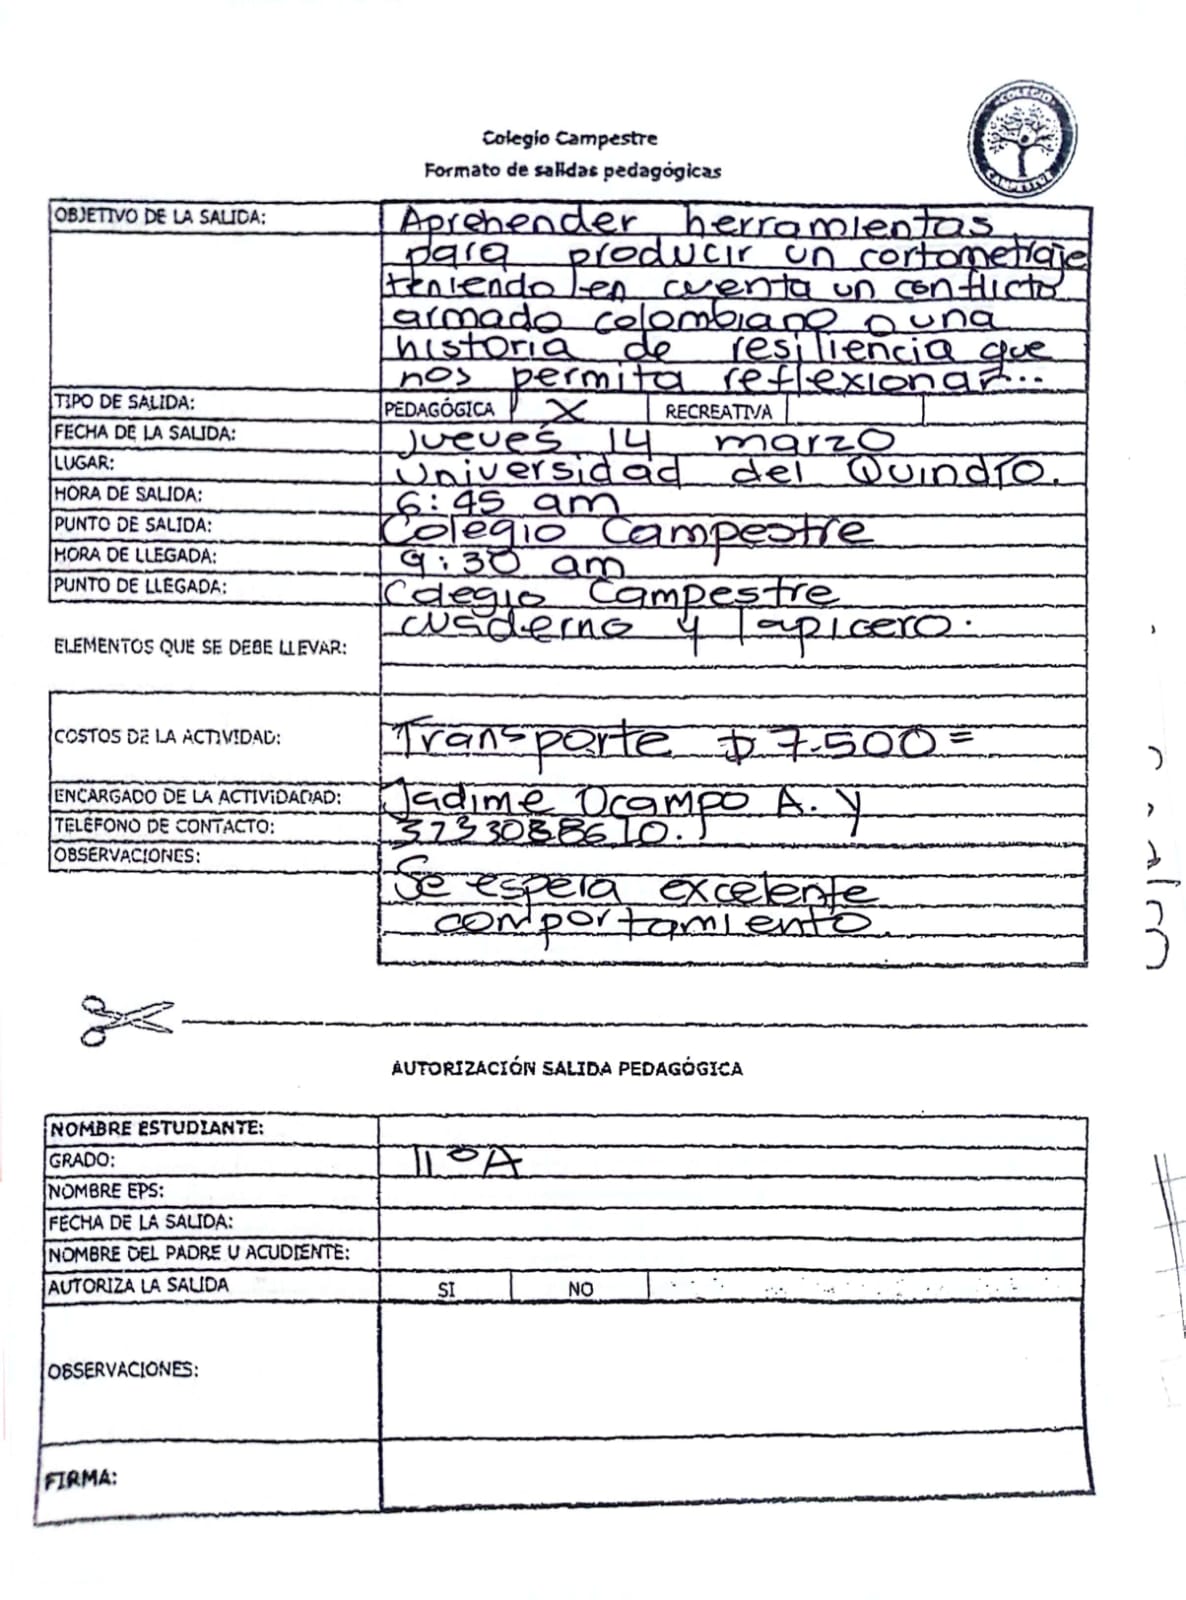 COLEGIO
CAMPESTRE
Colegio Campestre
Formato de salidas pedagógicas
OBJETIVO DE LA SALIDA: Aprehender herramientas
para producir un cortometraje
teniendo en cuenta un conflicto
armado colombiano o una
historia de resiliencia que
nos permita reflexionar...
TIPO DE SALIDA: PEDAGÓGICA X RECREATIVA
FECHA DE LA SALIDA: Jueves 14 marzo
LUGAR: Universidad del Quindío.
HORA DE SALIDA: 6:45 am
PUNTO DE SALIDA: Colegio Campestre
HORA DE LLEGADA: 9:30 am
PUNTO DE LLEGADA: Colegio Campestre
ELEMENTOS QUE SE DEBE LLEVAR: cuaderno y lapicero.
COSTOS DE LA ACTIVIDAD: Transporte $7.500=
ENCARGADO DE LA ACTIVIDADAD: Jadime Ocampo A. y
TELÉFONO DE CONTACTO:
OBSERVACIONES:
Se espera excelente
comportamiento.
AUTORIZACIÓN SALIDA PEDAGÓGICA
NOMBRE ESTUDIANTE:
GRADO: 11°A
NOMBRE EPS:
FECHA DE LA SALIDA:
NOMBRE DEL PADRE U ACUDIENTE:
AUTORIZA LA SALIDA SI NO
OBSERVACIONES:
FIRMA: